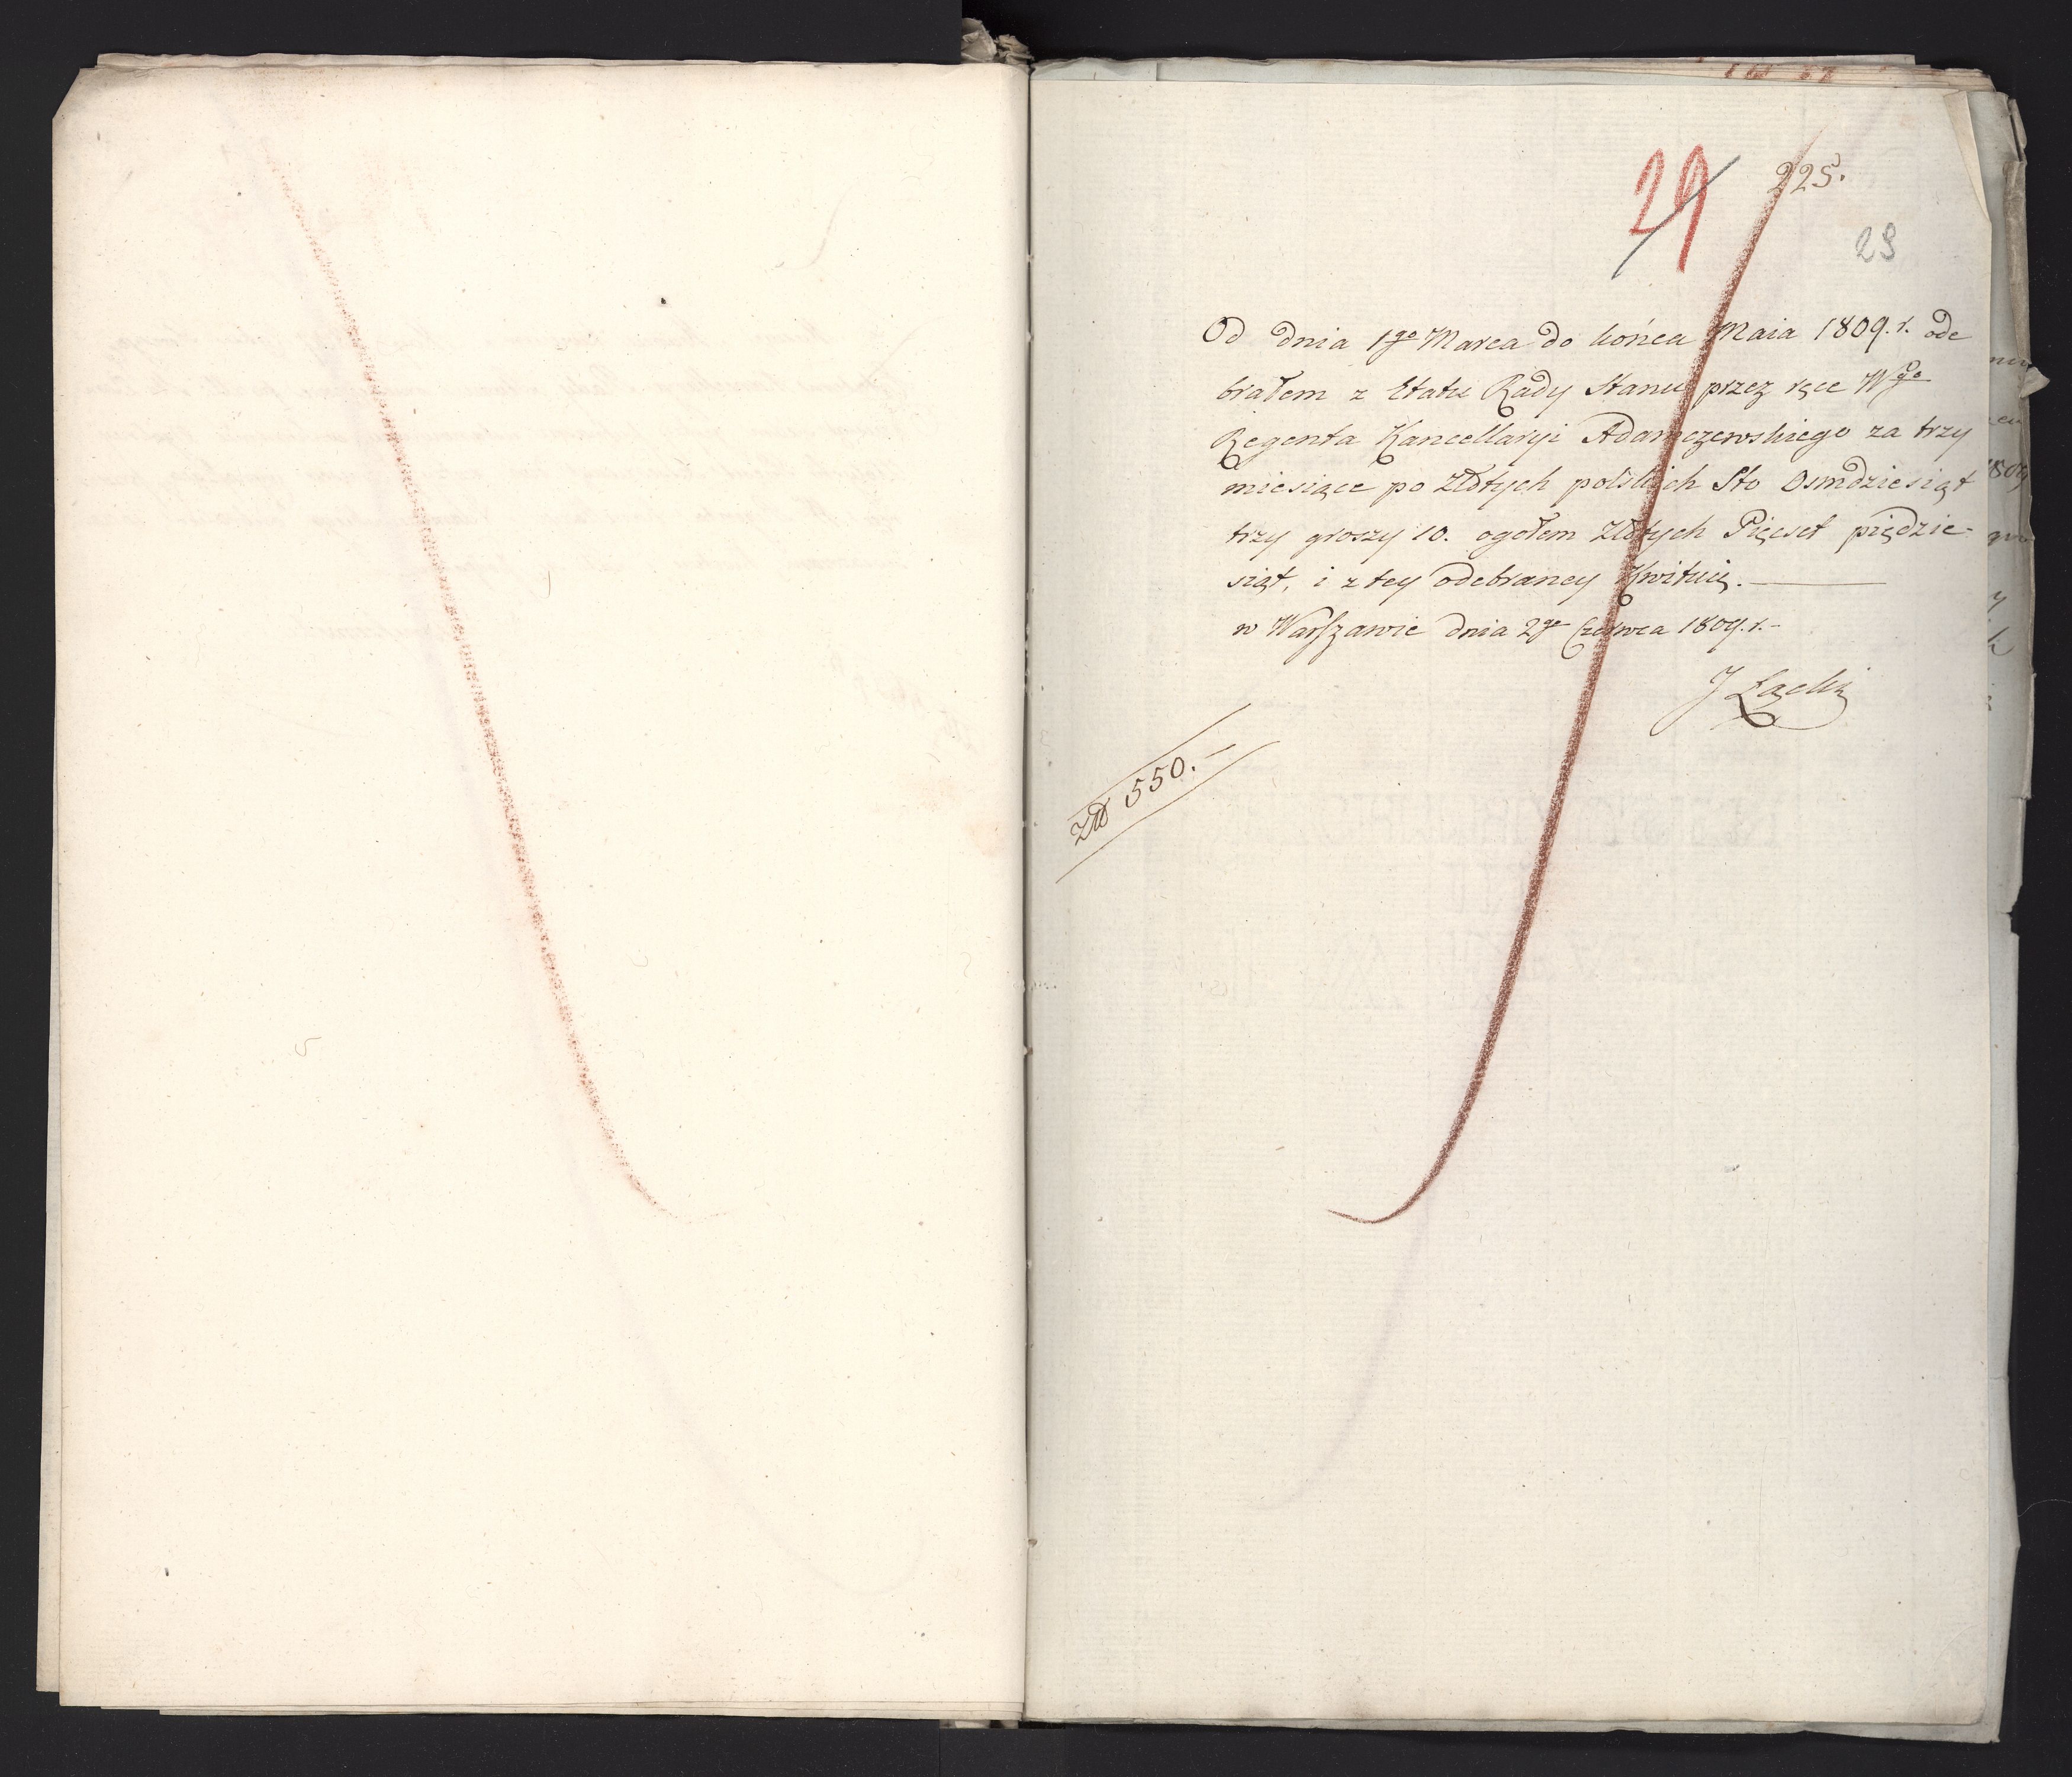 29 225.
29
Od dnia 1go Marca do końca Maia 1809. r. ode
brałem z Etatu Rady Stanu przez ręce Wgo
Regenta Kancellaryi Adamczewskiego za trzy
miesiące po Złłotych polskich Sto Osmdziesiąt
trzy groszy 10. ogołem Złłotych Pięcset piędzie-
siąt, i z tey odebraney Kwituię. —
w Warszawie dnia 2go Czerwca 1809. r. -
J Łącki
Złł 550. -
1809